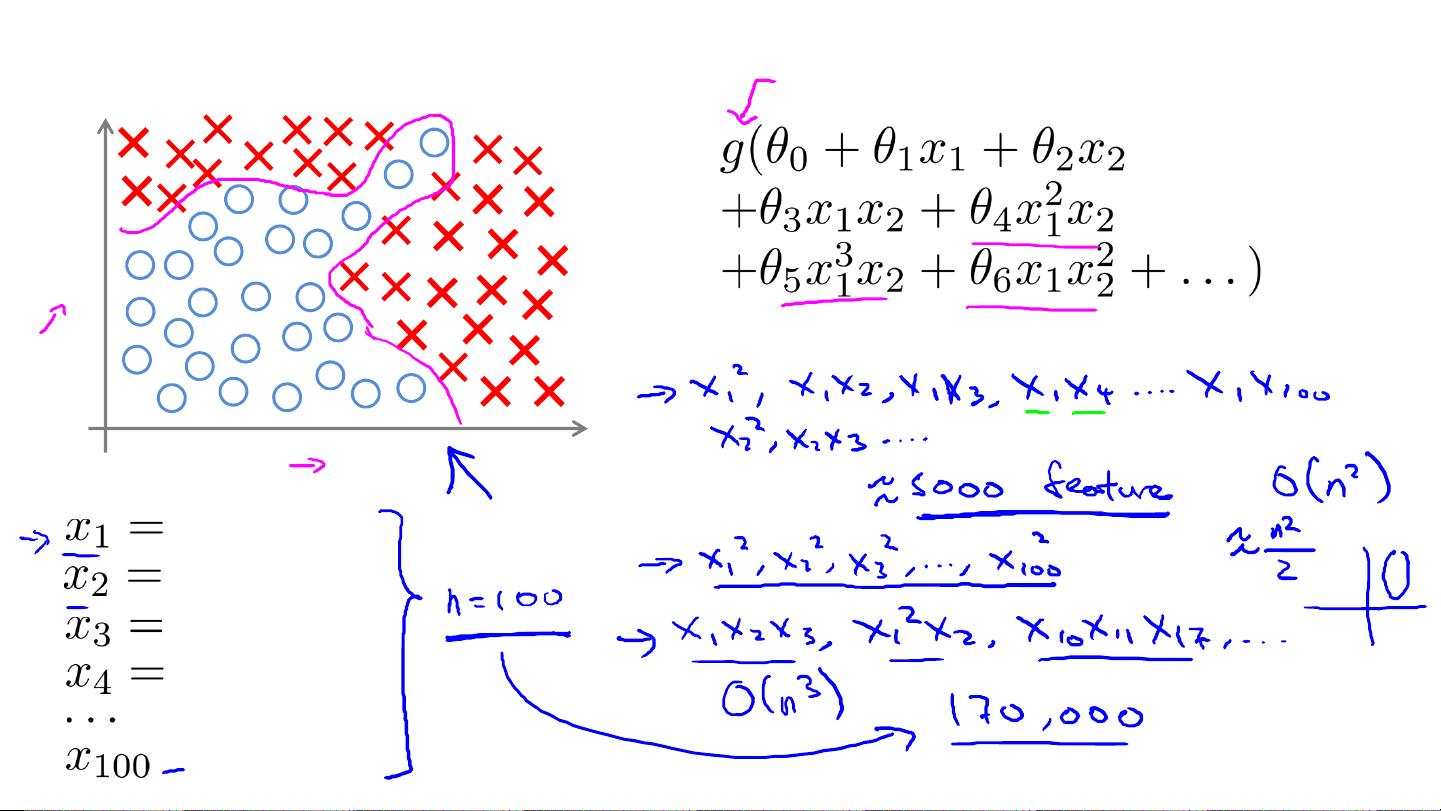 g(θ₀ + θ₁x₁ + θ₂x₂
+θ₃x₁x₂ + θ₄x₁²x₂
+θ₅x₁³x₂ + θ₆x₁x₂² + . . . )
→ x₁², x₁x₂, x₁x₃, x₁x₄ .... x₁x₁₀₀
x₂², x₂x₃ ....
≈ 5000 feature
O(n²)
≈ n²/2
x₁ =
x₂ =
x₃ =
x₄ =
. . .
x₁₀₀
n=100
→ x₁², x₂², x₃², ..., x₁₀₀²
→ x₁x₂x₃, x₁²x₂, x₁₀x₁₁x₁₇, ...
O(n³)
170,000